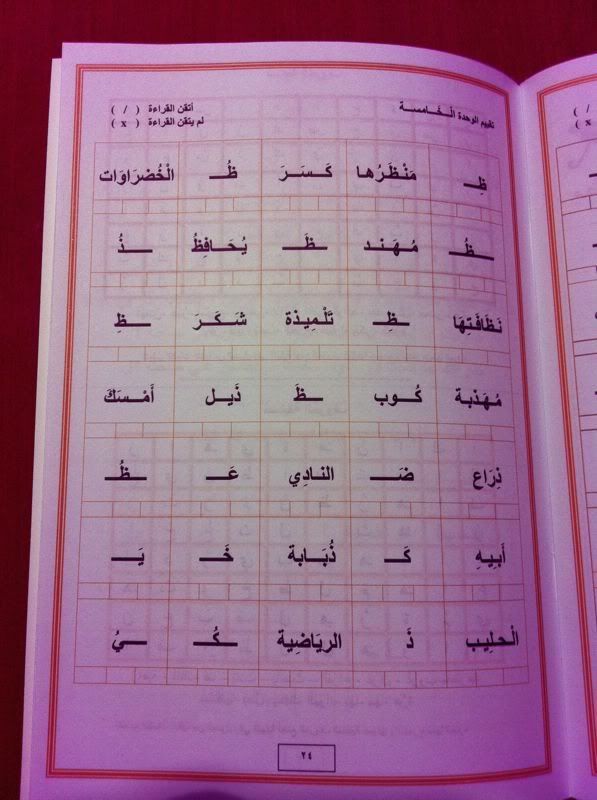 تقييم الوحدة الخامسة
أتقن القراءة ( / )
لم يتقن القراءة ( x )
ظِـ مَنْظَرُها كَـسَـرَ ظُـ الْخُضرَاوَات
ـظُـ مُـهَـنـد ـظَـ يُـحَـافِـظُ ـذُ
نَظَافَتِهَا ـظِـ تَلْمِيذة شَـكَـرَ ـظِ
مُـهَـذبة كُـوب ـظَ ذَيـل أَمْـسَـكَ
ذِرَاع ضَـ النـادِي عَـ ـظُ
أَبِيهِ كَـ ذُبَـابة خَـ يَـ
الْـحـلِيب ذَ الريَاضِية ـكُـ ـيُ
٢٤